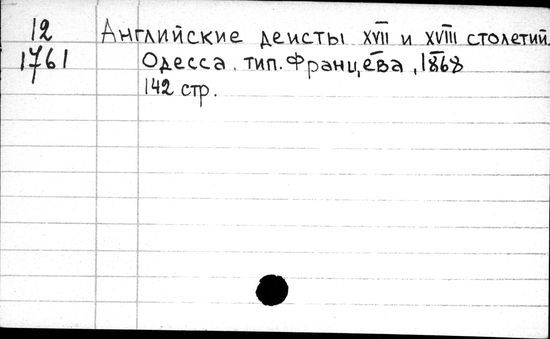 12 Английские деисты XVII и XVIII столетий.
1761 Одесса. тип. Францева, 1868
142 стр.